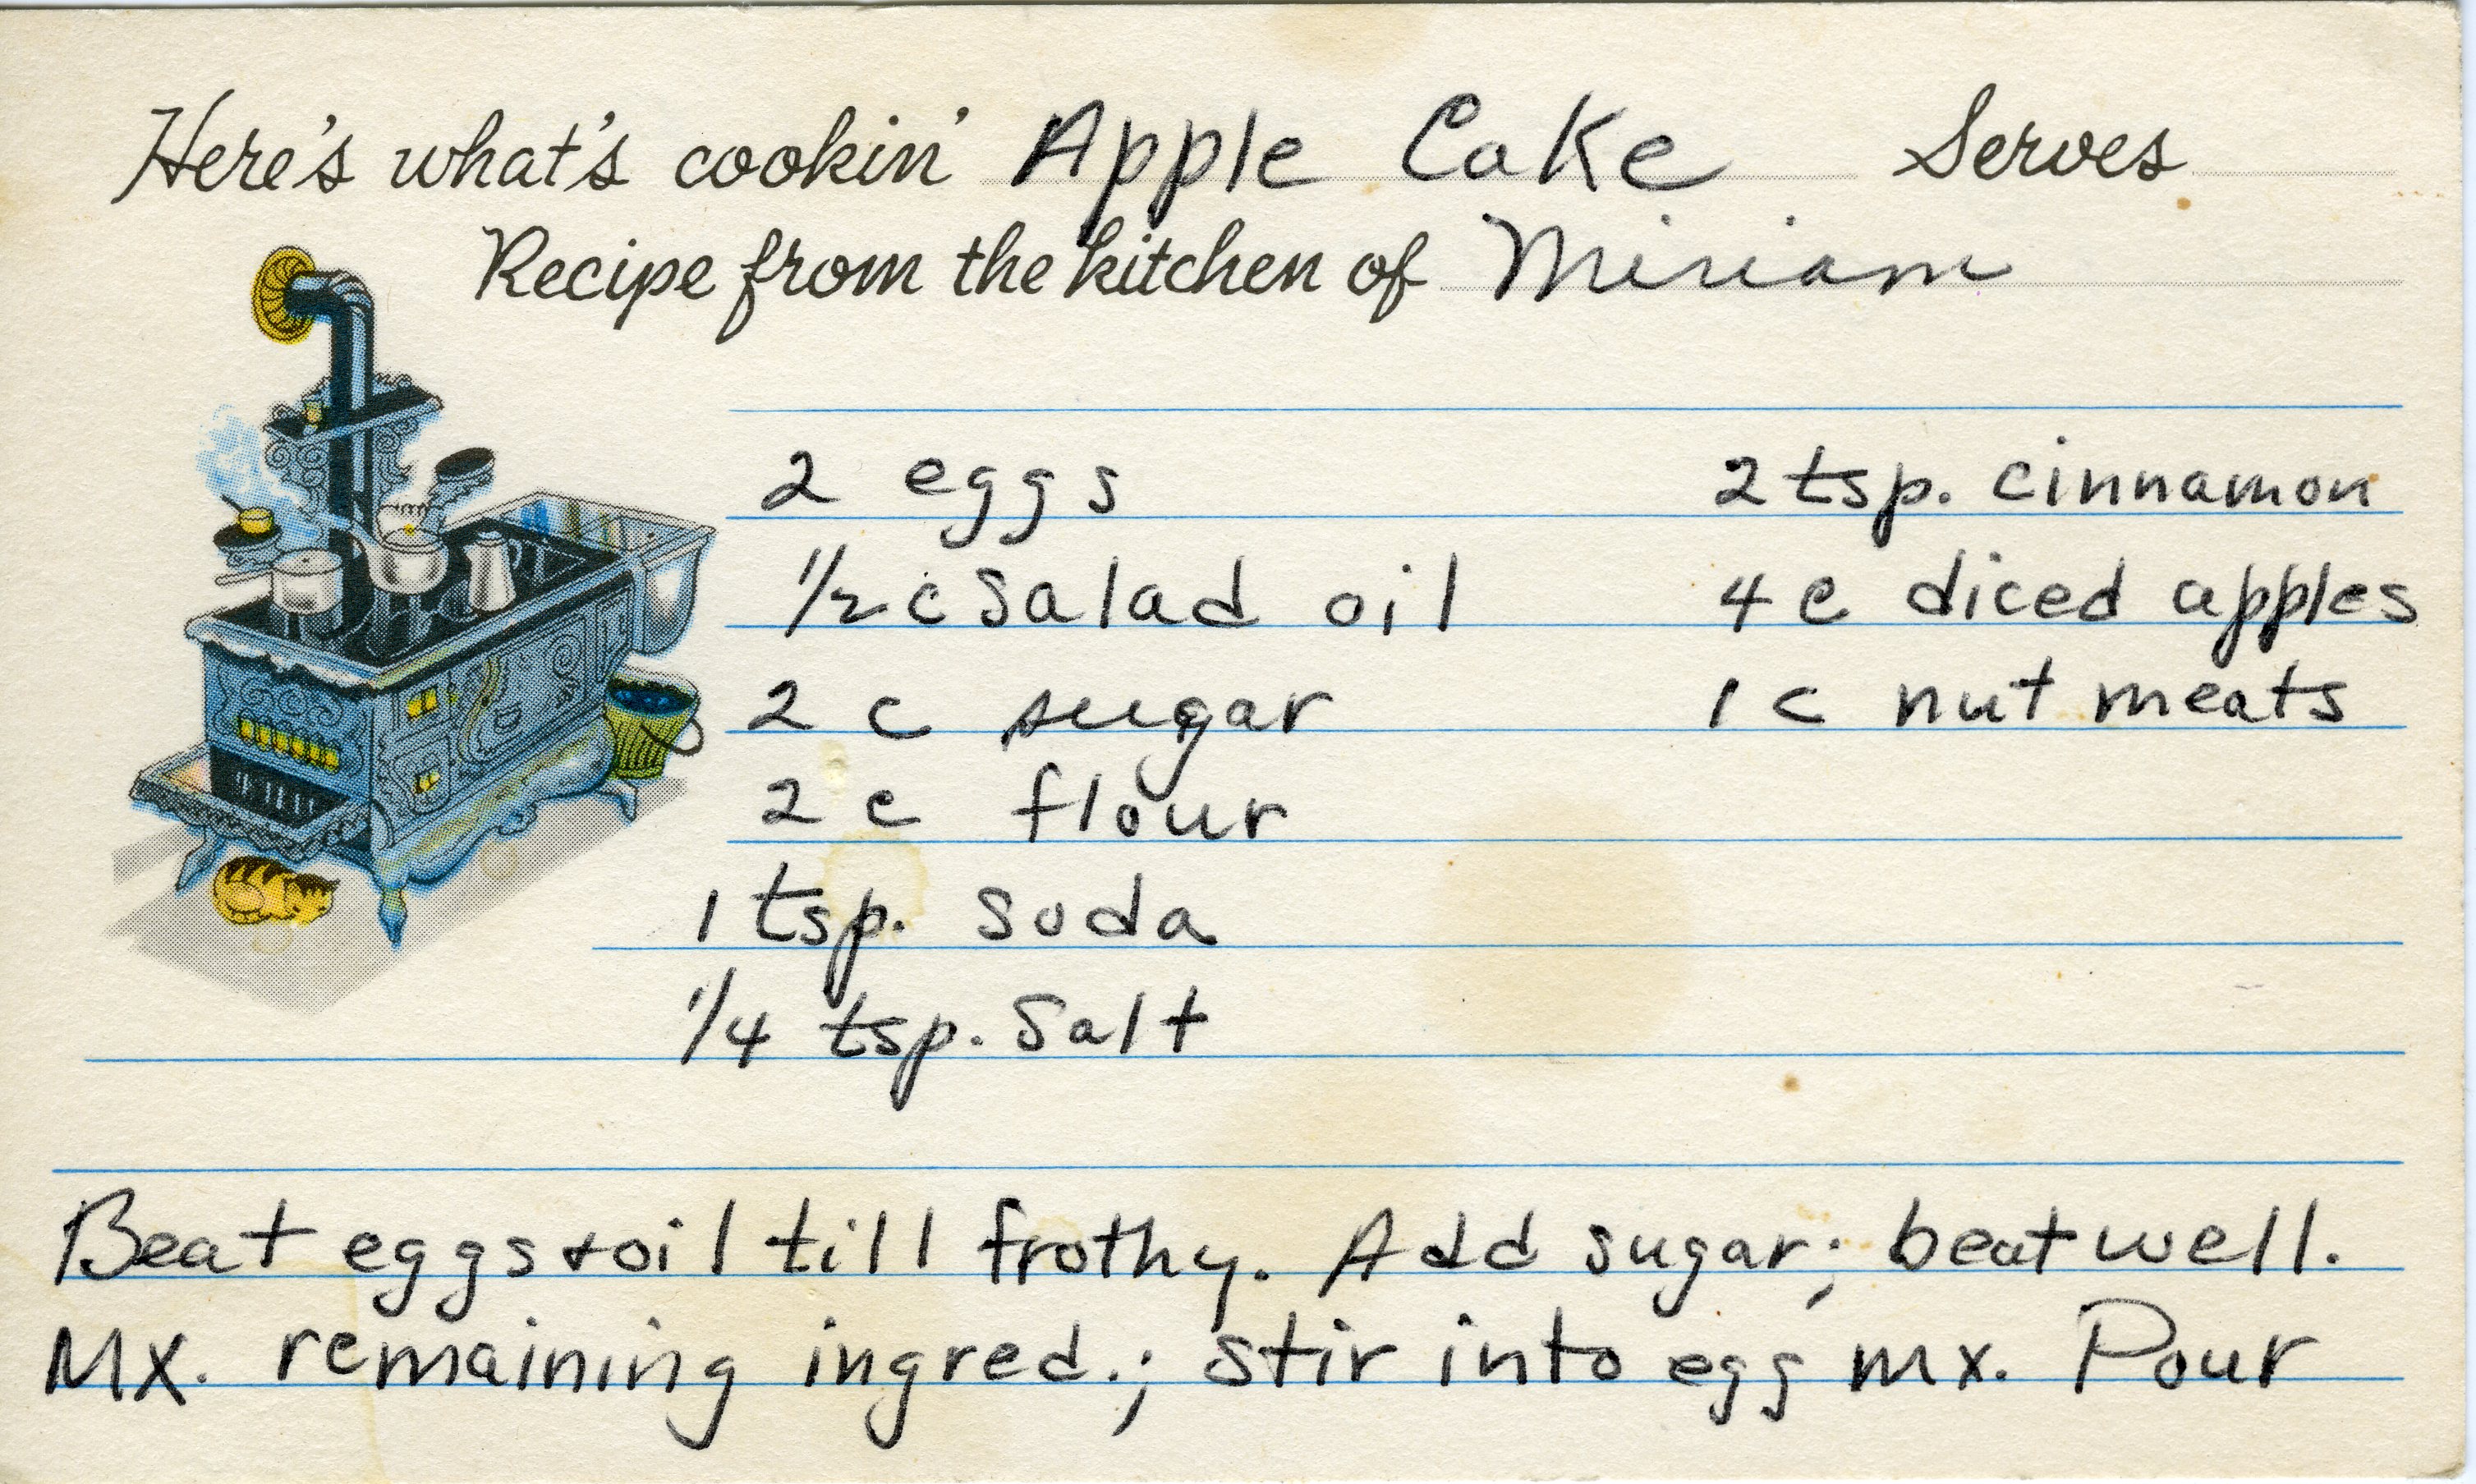 Here's what's cookin' Apple Cake Serves
Recipe from the kitchen of Miriam
2 eggs
1/2 c salad oil
2 c sugar
2 c flour
1 tsp. soda
1/4 tsp. salt
2 tsp. cinnamon
4 c diced apples
1 c nut meats
Beat eggs + oil till frothy. Add sugar; beat well.
Mx. remaining ingred.; stir into egg mx. Pour